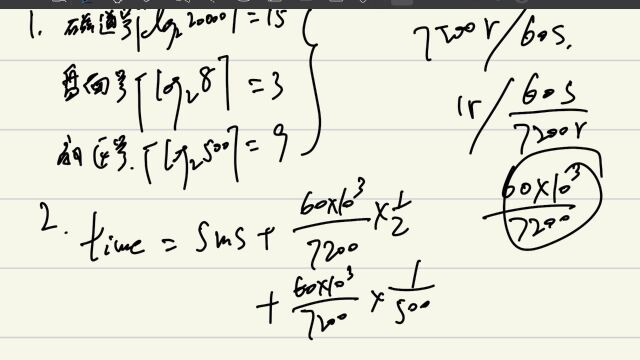 1. 磁道号⌈log₂20000⌉=15
盘面号⌈log₂8⌉=3
扇区号.⌈log₂500⌉=9
7200r/60s.
1r/60s/7200r
60×10³/7200
2. time = 5ms + 60×10³/7200 × 1/2
+ 60×10³/7200 × 1/500